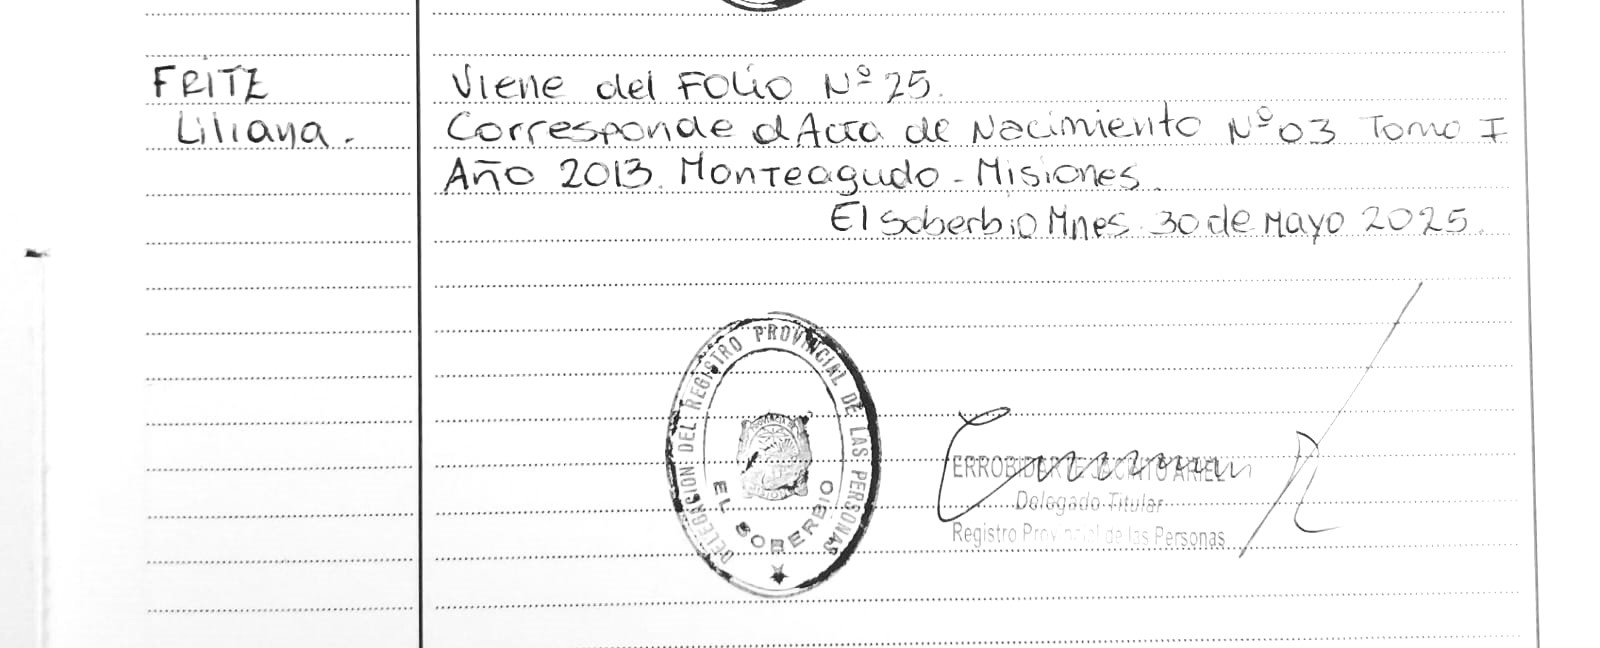 FRITZ
Liliana.
Viene del Folio Nº 25.
Corresponde al Acta de Nacimiento Nº 03 Tomo I
Año 2013. Monteagudo - Misiones.
El Soberbio Mnes. 30 de Mayo 2025.
DELEGACION DEL REGISTRO PROVINCIAL DE LAS PERSONAS
EL SOBERBIO
ARIEL
Delegado Titular
Registro Provincial de las Personas